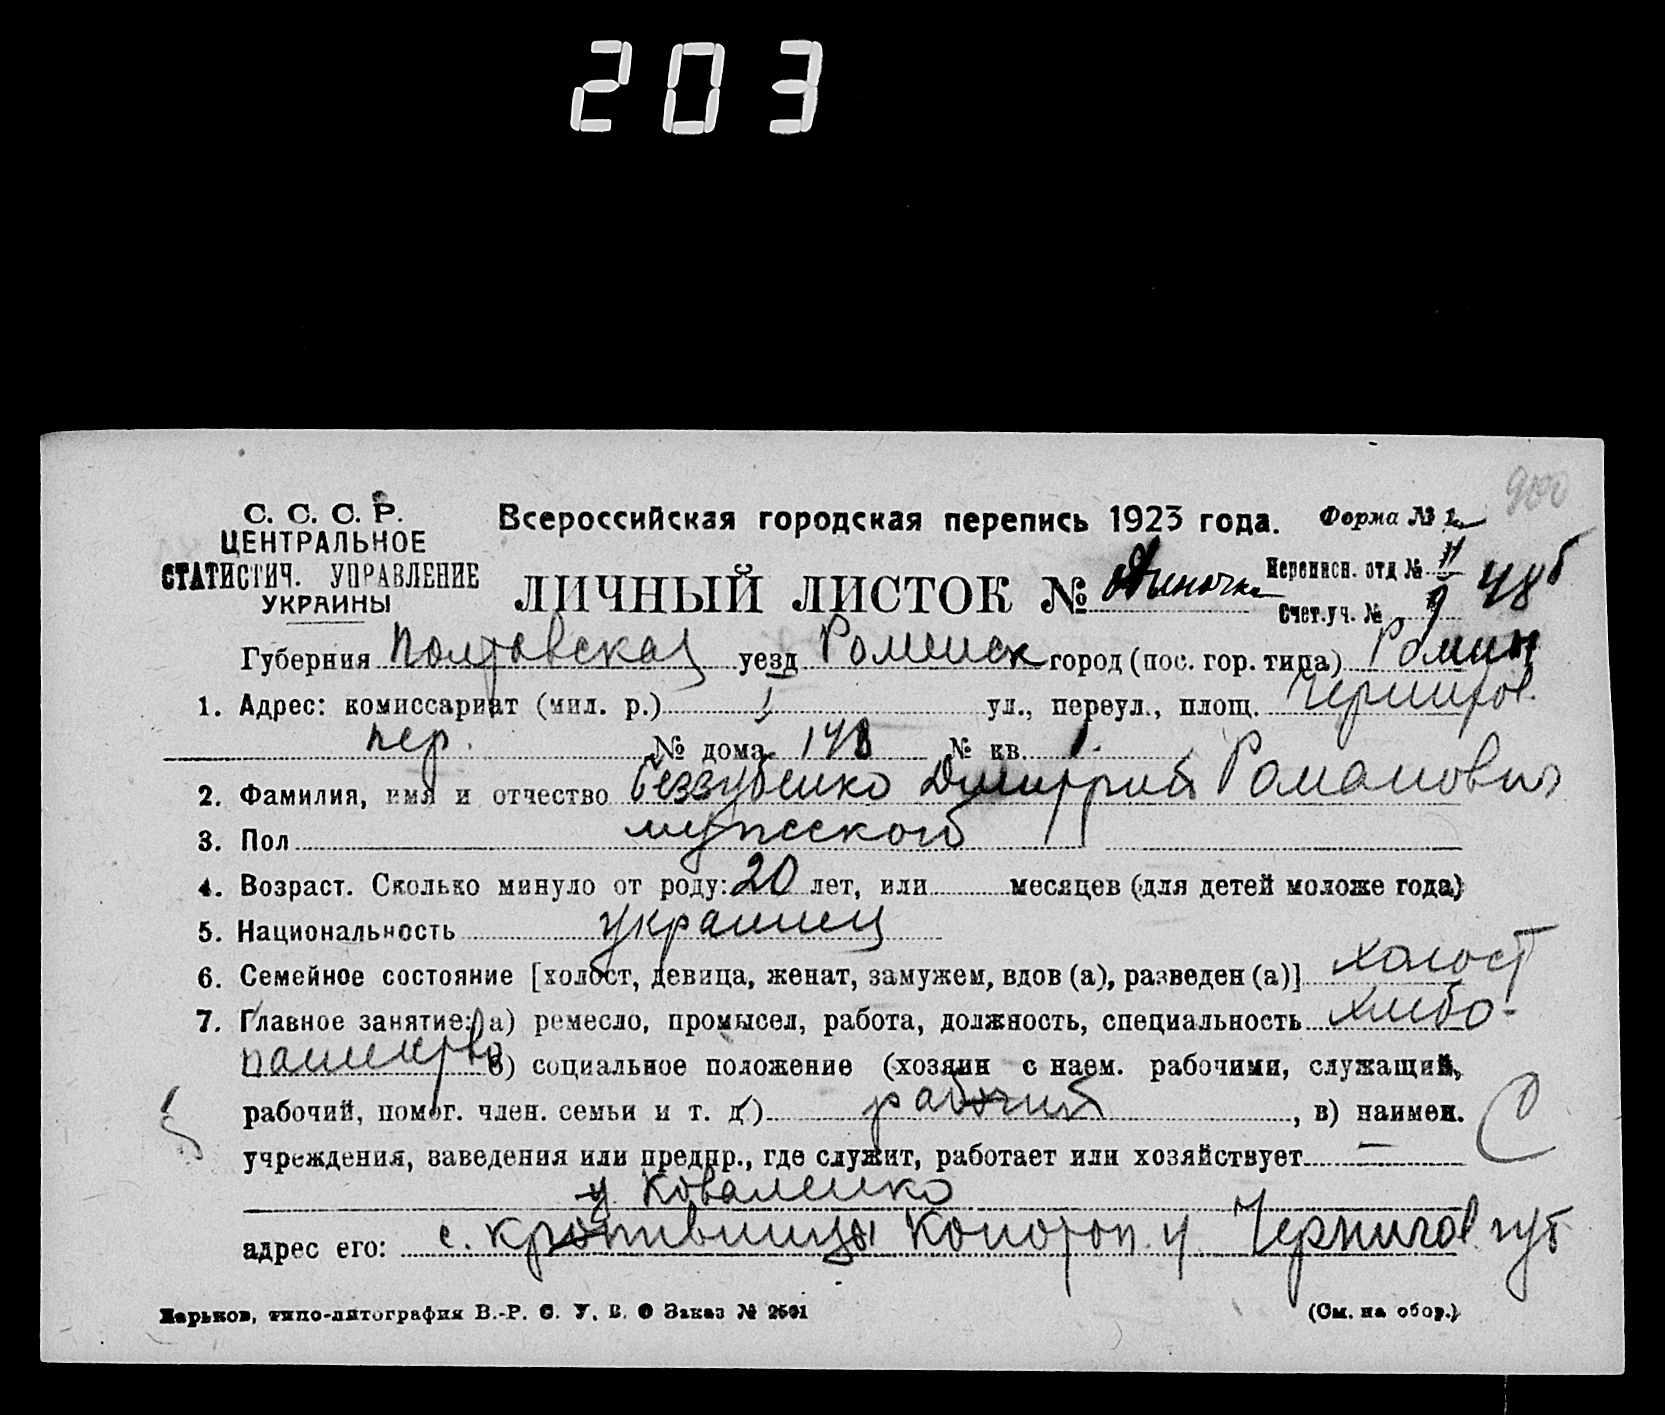 203
900
С. С. С. Р.
ЦЕНТРАЛЬНОЕ
СТАТИСТИЧ. УПРАВЛЕНИЕ
УКРАИНЫ
Всероссийская городская перепись 1923 года. Форма № 1
ЛИЧНЫЙ ЛИСТОК № одиночка
Переписн. отд № II 48б
Счет.уч. № 9
Губерния Полтавская уезд Роменск город (пос. гор. типа) Ромны
1. Адрес: комиссариат (мил. р.) I ул., переул., площ. Чернигов.
пер. № дома 148 № кв. 1.
2. Фамилия, имя и отчество Беззубенко Дмитрий Романович
3. Пол мужской
4. Возраст. Сколько минуло от роду: 20 лет, или месяцев (для детей моложе года)
5. Национальность украинец
6. Семейное состояние [холост, девица, женат, замужем, вдов (а), разведен (а)] холост
7. Главное занятие: а) ремесло, промысел, работа, должность, специальность хлибо-
пашество б) социальное положение (хозяин с наем. рабочими, служащий,
рабочий, помог. член. семьи и т. д.) рабочий, в) наимен.
учреждения, заведения или предпр., где служит, работает или хозяйствует —
у Коваленко
адрес его: с. Кропивницы Конотоп. у. Чернигов. губ
Харьков, типо-литография В.-Р. С. У. В. О Заказ № 2501 (См. на обор.)